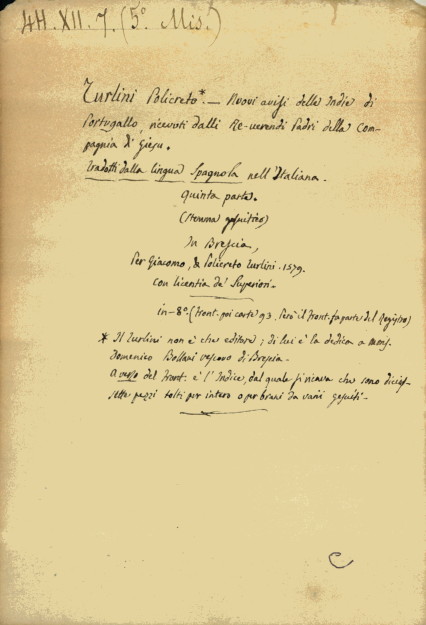 4H. XII. 7. (5º Mis.)
Turlini Policreto*. — Nuovi avisi delle Indie di
Portugallo, ricevuti dalli Re-verendi Padri della Com-
pagnia di Giesu.
Tradotti dalla lingua Spagnola nell'Italiana.
Quinta parte.
(Stemma gesuitico)
In Brescia,
Per Giacomo, & Policreto Turlini. 1579.
con licentia de' Superiori.
in-8º. (Front. poi carte 93. Però il front. fa parte del Registro)
* Il Turlini non è che editore; di lui è la dedica a mons.
Domenico Bollani vescovo di Brescia.
A verso del front. è l'Indice, dal quale si ricava che sono dicias-
sette pezzi tolti per intero o per brani da varii gesuiti.
C